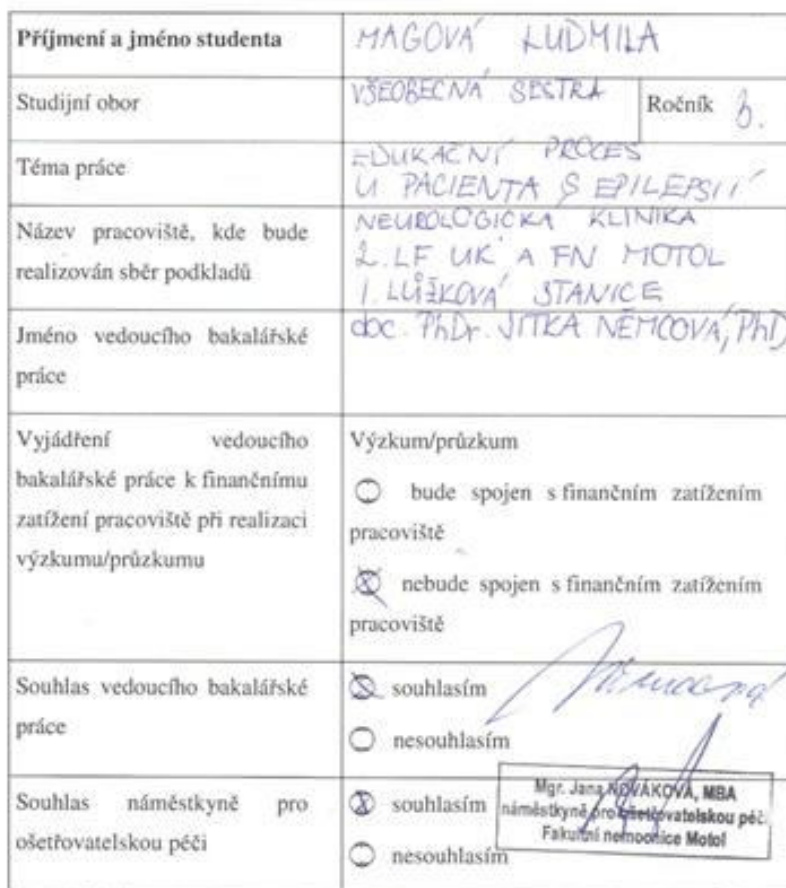 Příjmení a jméno studenta
MAGOVÁ LUDMILA
Studijní obor
VŠEOBECNÁ SESTRA
Ročník
3.
Téma práce
EDUKAČNÍ PROCES
U PACIENTA S EPILEPSIÍ
Název pracoviště, kde bude
realizován sběr podkladů
NEUROLOGICKÁ KLINIKA
2. LF UK A FN MOTOL
1. LŮŽKOVÁ STANICE
Jméno vedoucího bakalářské
práce
doc. PhDr. JITKA NĚMCOVÁ, PhD
Vyjádření vedoucího
bakalářské práce k finančnímu
zatížení pracoviště při realizaci
výzkumu/průzkumu
Výzkum/průzkum
bude spojen s finančním zatížením
pracoviště
nebude spojen s finančním zatížením
pracoviště
Souhlas vedoucího bakalářské
práce
souhlasím
Němcová
nesouhlasím
Souhlas náměstkyně pro
ošetřovatelskou péči
souhlasím
nesouhlasím
Mgr. Jana NOVÁKOVÁ, MBA
náměstkyně pro ošetřovatelskou péči
Fakultní nemocnice Motol